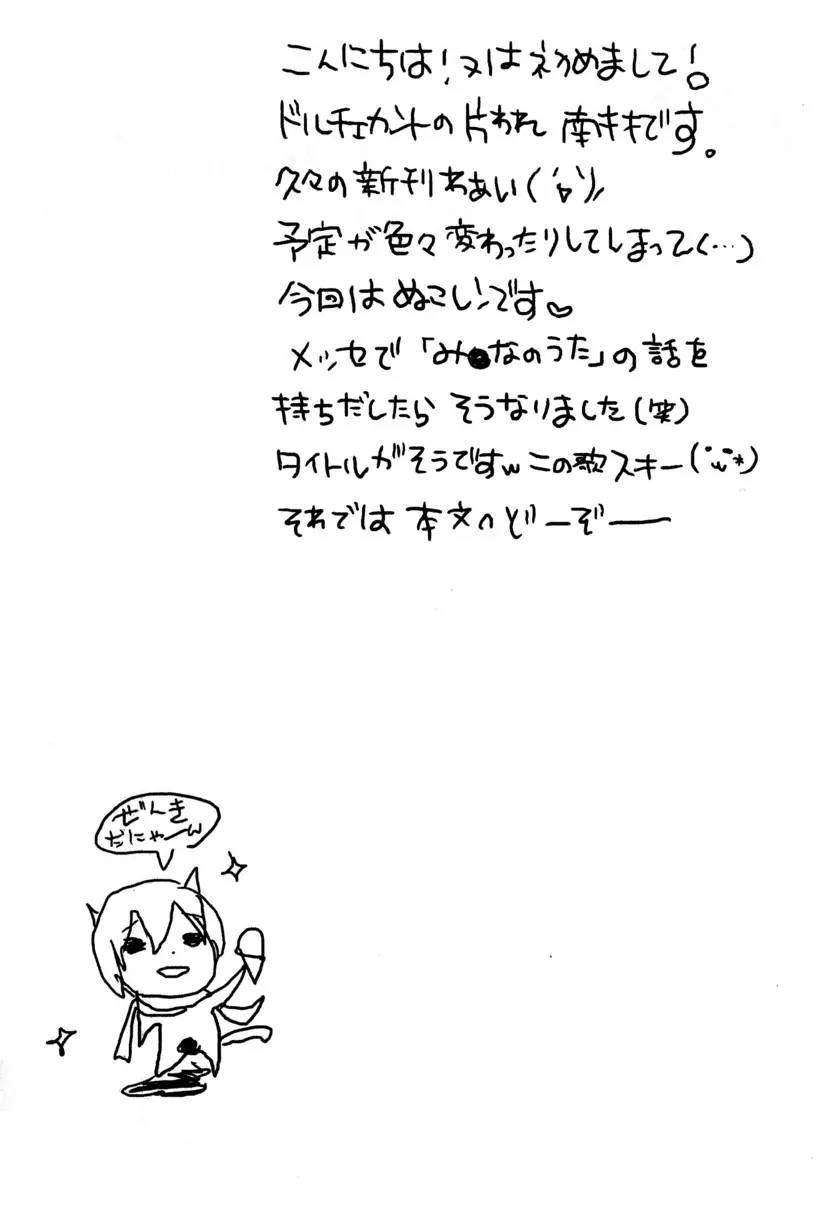 こんにちは!又は初めまして!
ドルチェカントの片われ 南キキです。
久々の新刊わあい('ワ')ノ
予定が色々変わったりしてしまって(…)
今回はぬこレンです♡
メッセで「み●なのうた」の話を
持ちだしたら そうなりました(笑)
タイトルがそうですw この歌スキー(´ω`*)
それでは 本文へどーぞー
ぜんき
だにゃーw